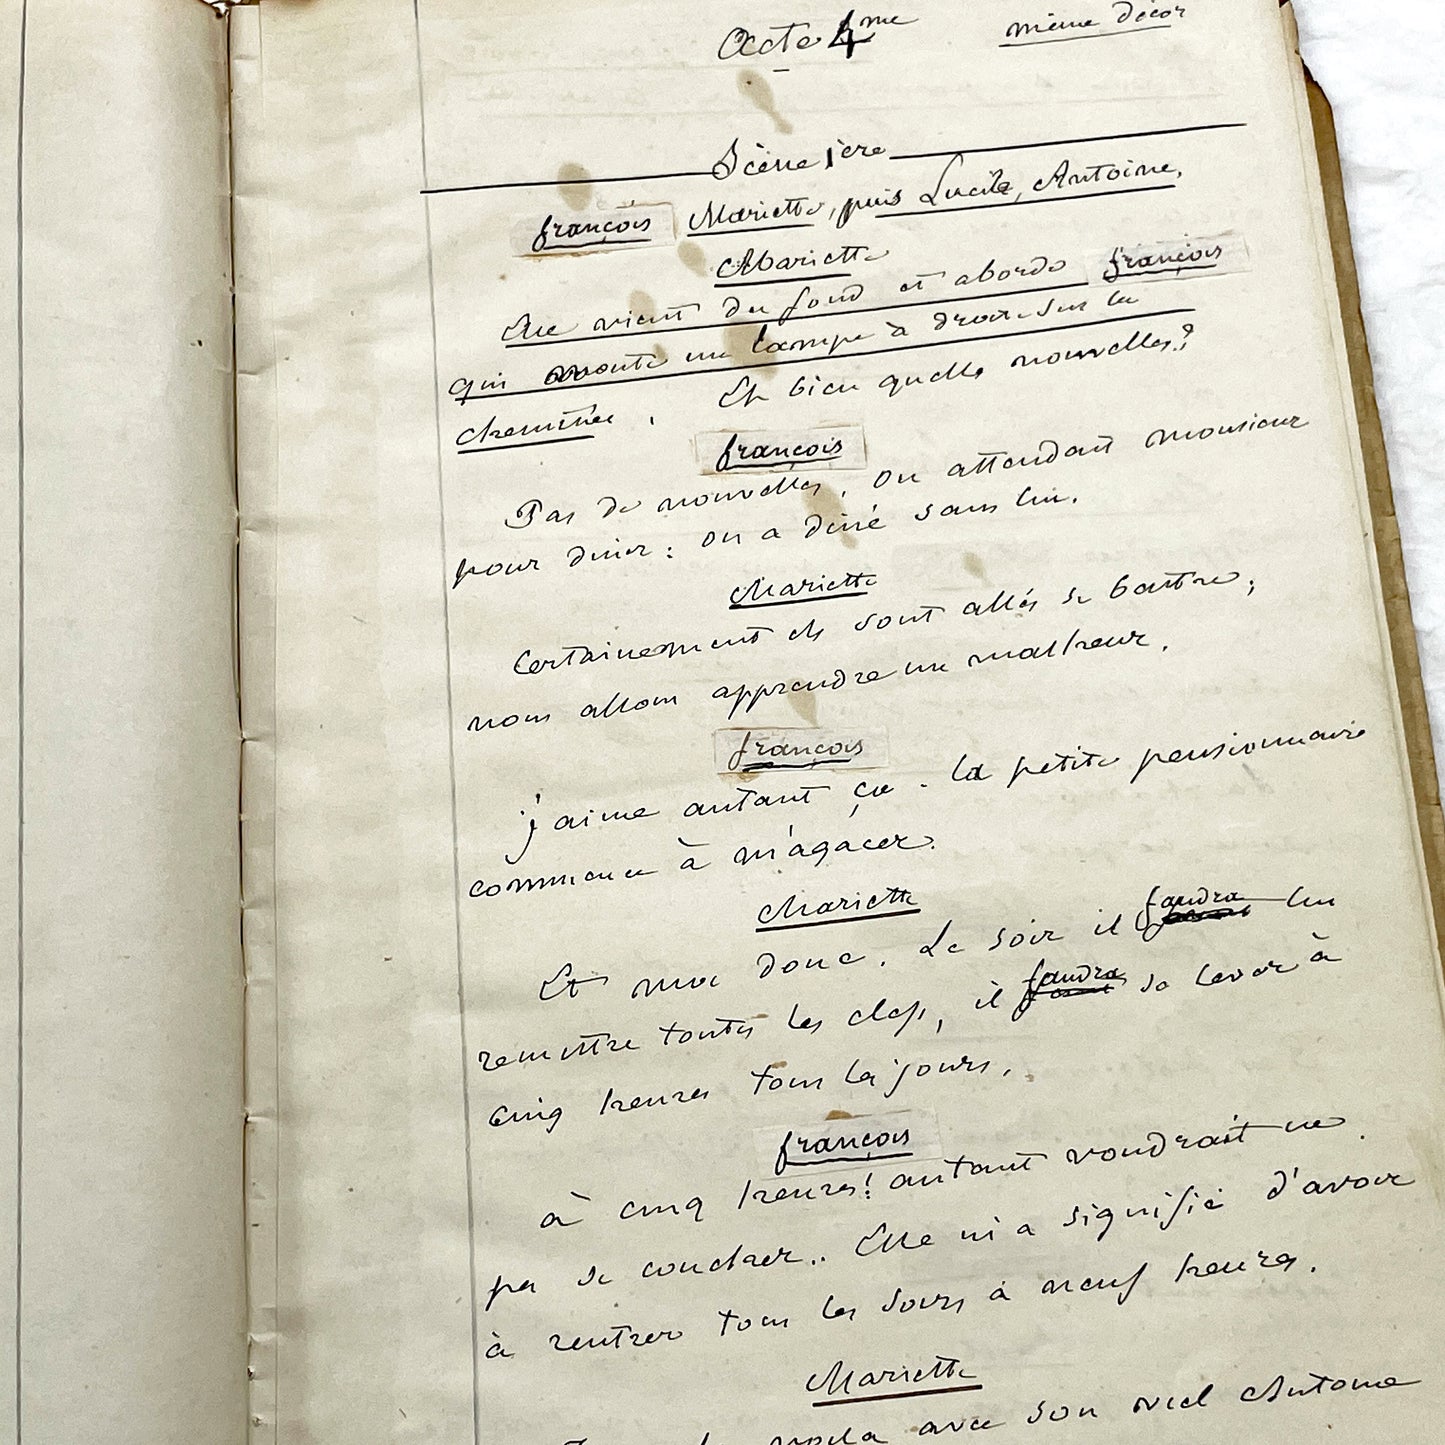 Acte 4me même décor
Scène 1ère
françois Mariette, puis Lucile, Antoine,
Mariette
Elle vient du fond et aborde françois
qui monte une lampe à droite sur la
cheminée. Eh bien quelles nouvelles?
françois
Pas de nouvelles, on attendait monsieur
pour diner: on a diné sans lui.
Mariette
Certainement ils sont allés se battre;
nous allons apprendre un malheur.
françois
j'aime autant ça. la petite pensionnaire
commence à m'agacer.
Mariette
Et moi donc. Le soir il faudra lui
remettre toutes les clefs, il faudra se lever à
cinq heures tous les jours.
françois
à cinq heures! autant voudrait ne
pas se coucher.. Elle m'a signifié d'avoir
à rentrer tous les soirs à neuf heures.
Mariette
voila avec son vieil Antoine